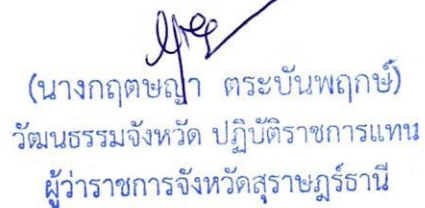 (นางกฤตษญา ตระบันพฤกษ์)
วัฒนธรรมจังหวัด ปฏิบัติราชการแทน
ผู้ว่าราชการจังหวัดสุราษฎร์ธานี